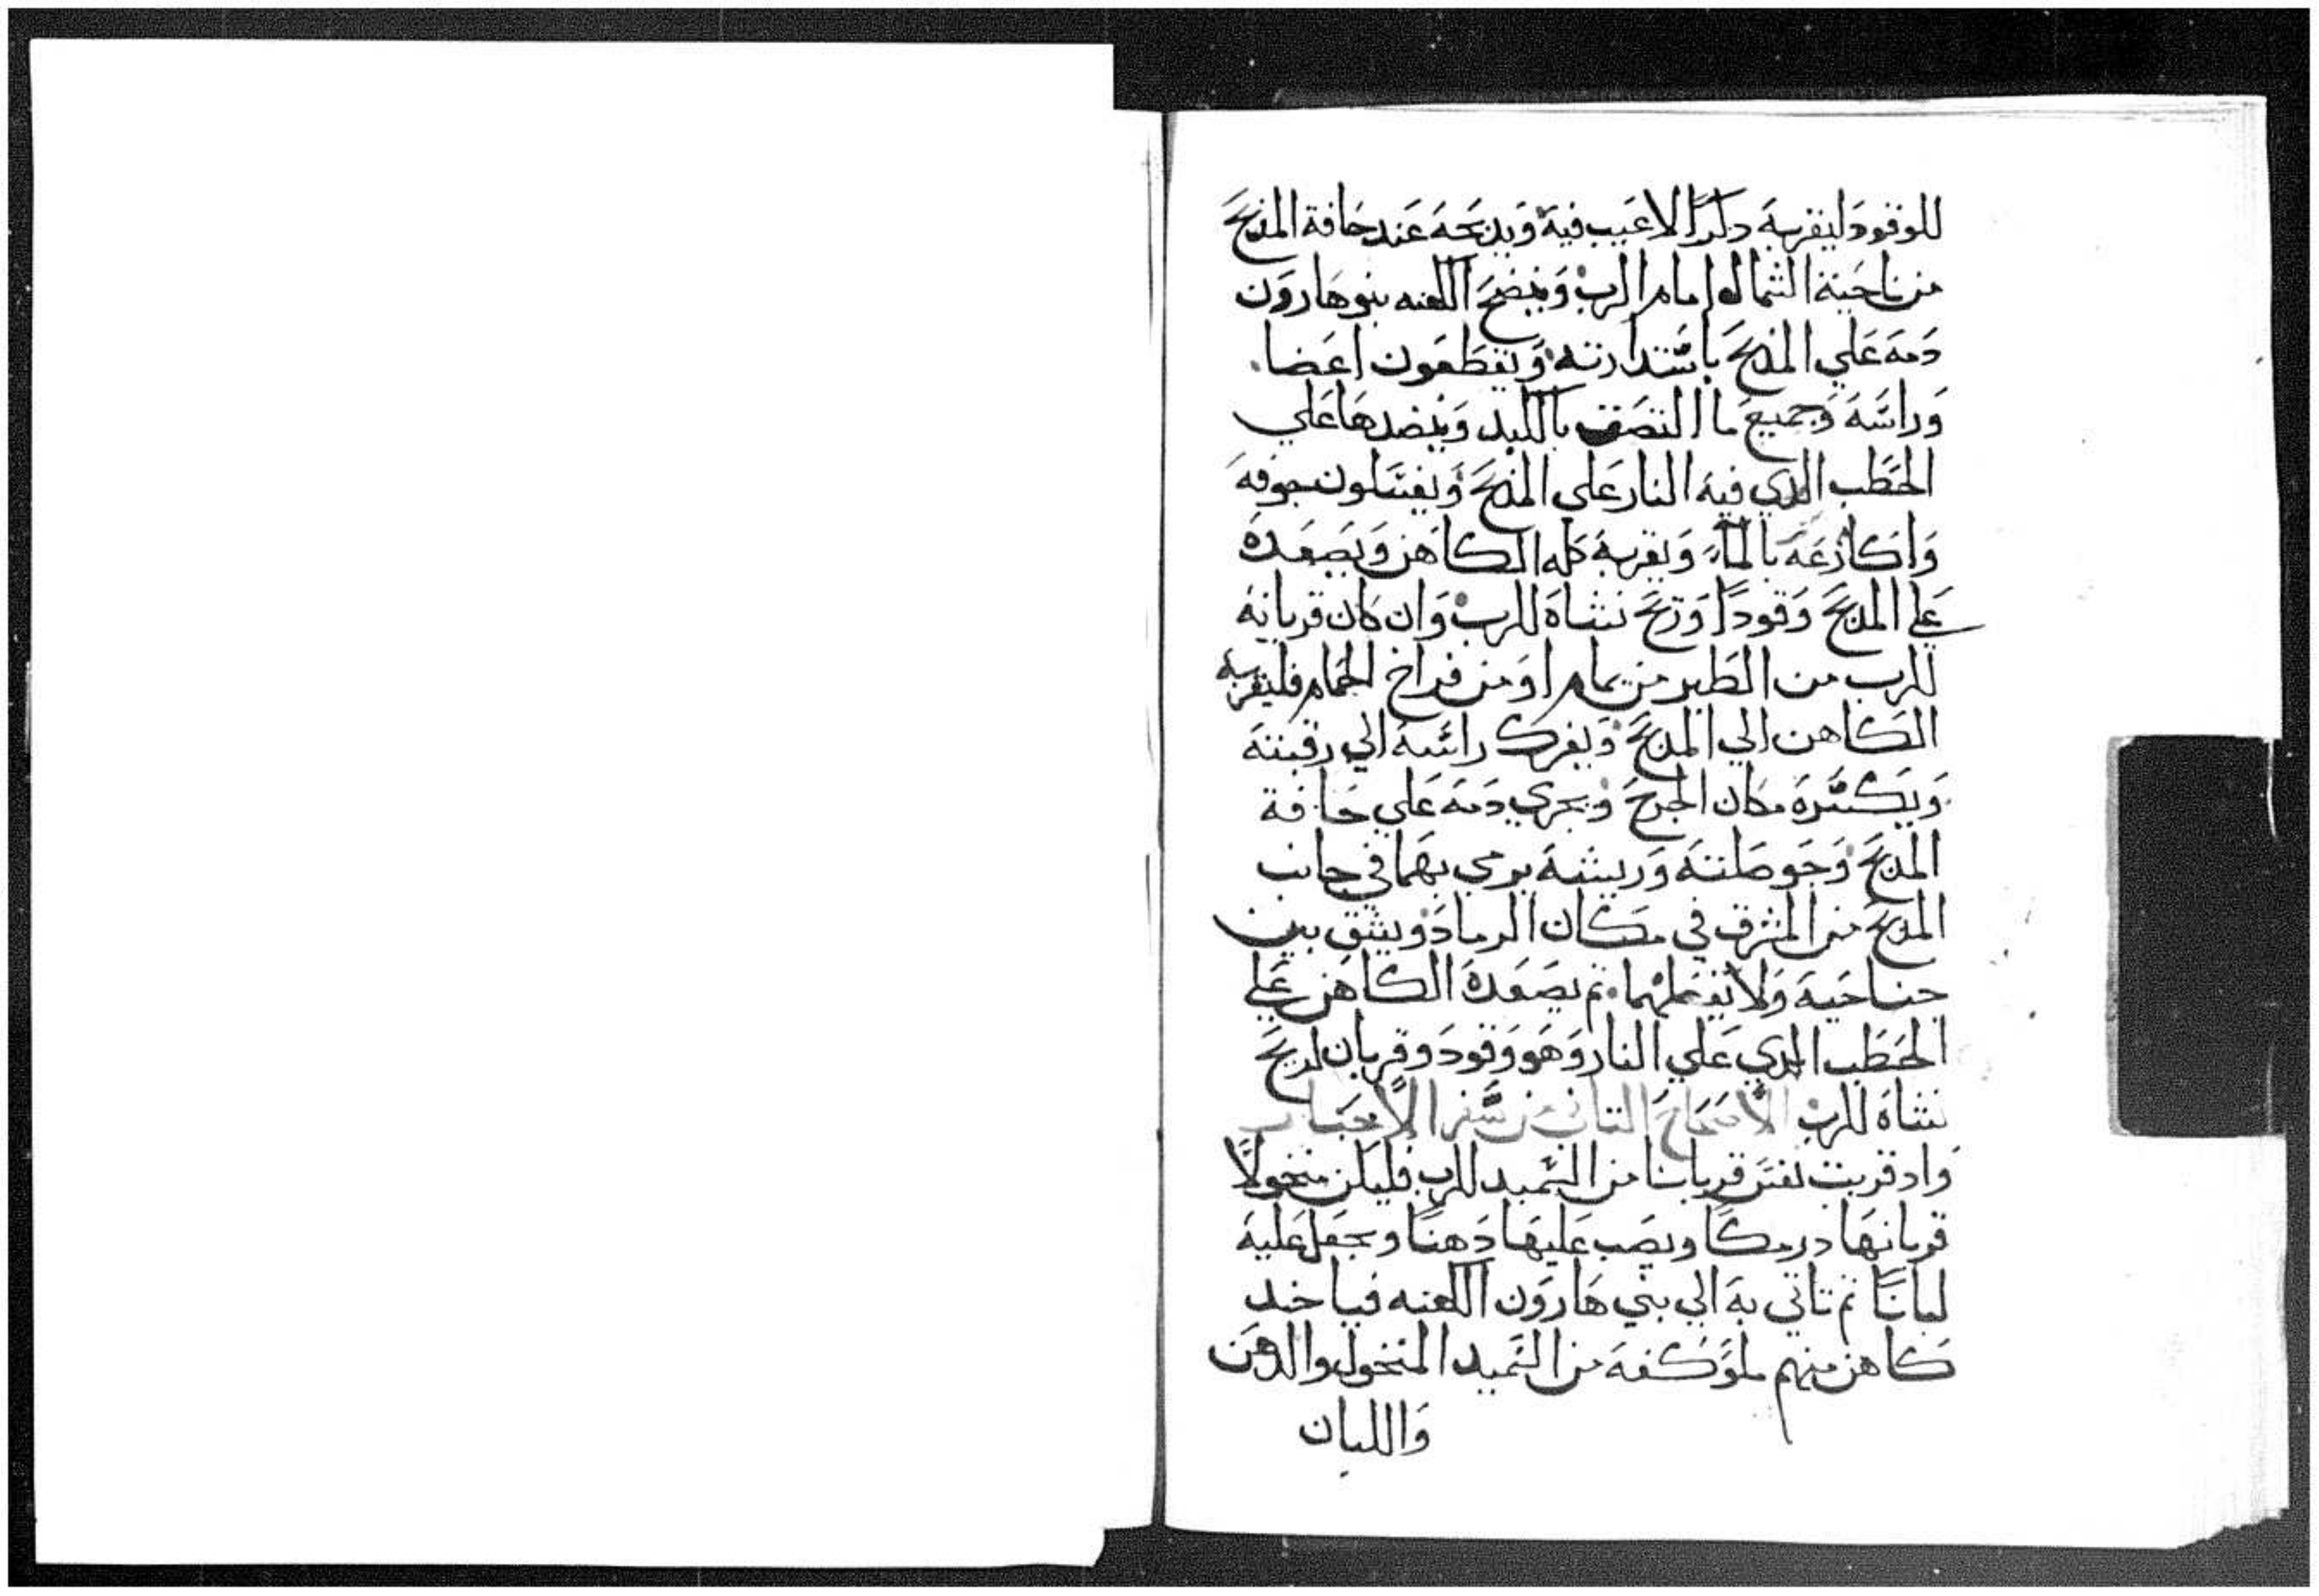 للوقود ليقربه دكرًا لا عيب فيه ويدبحه عند حافة المدبح
من ناحية الشمال امام الرب وينضح الكهنه بنو هارون
دمه علي المدبح باستدارته ويقطعون اعضا
وراسه وجميع ما التصق بالكبد وينضدها علي
الحطب الدي فيه النار علي المدبح ويغسلون جوفه
واكارعه بالمآء ويقربه كله الكاهن ويصعده
علي المدبح وقودًا وريح نشاه للرب وان كان قربانه
للرب من الطير من يمام او من فراخ الحمام فليقربه
الكاهن الي المدبح ويفرك راسه الي رقبته
ويكسره مكان الجرح ويجري دمه علي حافة
المدبح وحوصلته وريشه يرمي بهما في جانب
المدبح من المشرق في مكان الرماد ويشق بين
جناحيه ولا يفصلهما ثم يصعده الكاهن علي
الحطب الدي علي النار وهو وقود وقربان لريح
نشاه للرب الاصحاح التاني من سفر الاحبار
واد قربت نفس قربانا من السميد للرب فليكن منخولًا
قربانها درمكًا ويصب عليها دهنًا ويجعل عليه
لبانًا ثم تاتي به الي بني هارون الكهنه فياخد
كاهن منهم ملو كفه من السميد المنخول والدهن
واللبان